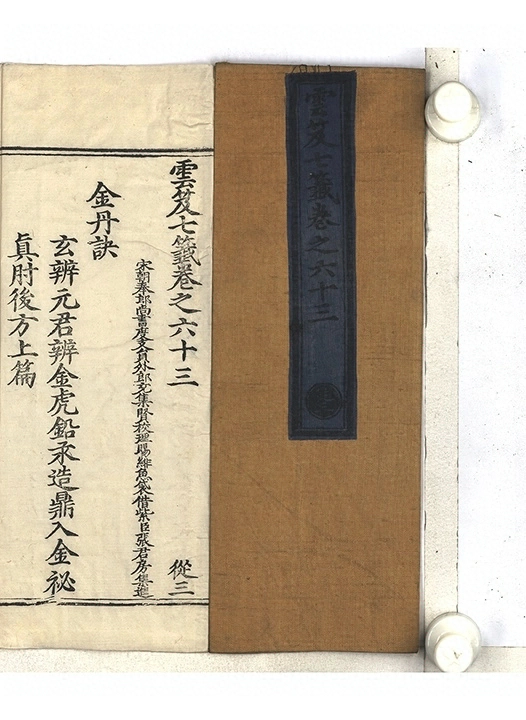 雲笈七籤卷之六十三
雲笈七籤卷之六十三
從三
宋朝奉郎尚書度支員外郎充集賢校理賜緋魚袋借紫臣張君房集進
金丹訣
玄辨元君辨金虎鉛汞造鼎入金祕
眞肘後方上篇